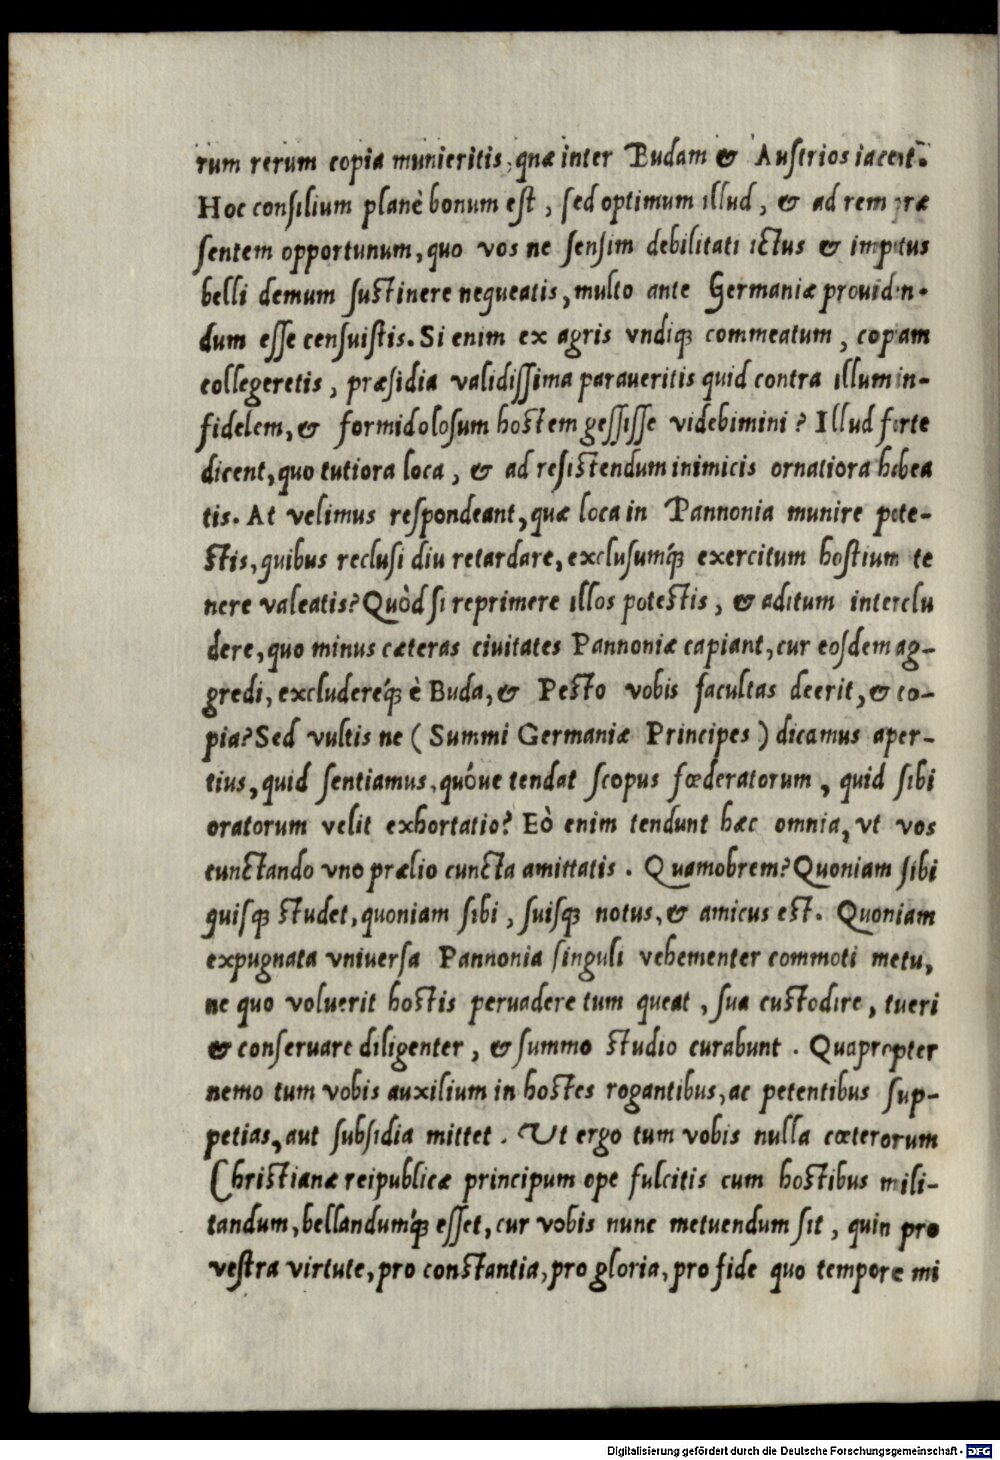 rum rerum copia munieritis, quæ inter Budam & Austrios iacent.
Hoc consilium planè bonum est, sed optimum illud, & ad rem præ
sentem opportunum, quo vos ne sensim debilitati ictus & impetus
belli demum sustinere nequeatis, multo ante Germaniæ providen-
dum esse censuistis. Si enim ex agris vndiq; commeatum, copiam
collegeretis, præsidia validissima paraveritis quid contra illum in-
fidelem, & formidolosum hostem gessisse videbimini? Illud forte
dicent, quo tutiora loca, & ad resistendum inimicis ornatiora habea
tis. At velimus respondeant, quæ loca in Pannonia munire pote-
stis, quibus reclusi diu retardare, exclusumq́; exercitum hostium te
nere valeatis? Quòd si reprimere illos potestis, & aditum interclu
dere, quo minus cæteras civitates Pannoniæ capiant, cur eosdem ag-
gredi, excludereq́; è Buda, & Pesto vobis facultas deerit, & co-
pia? Sed vultis ne (Summi Germaniæ Principes) dicamus aper-
tius, quid sentiamus, quóue tendat scopus fœderatorum, quid sibi
oratorum velit exhortatio? Eò enim tendunt hæc omnia, vt vos
cunctando vno prælio cuncta amittatis. Quamobrem? Quoniam sibi
quisq; studet, quoniam sibi, suisq; notus, & amicus est. Quoniam
expugnata vniuersa Pannonia singuli vehementer commoti metu,
ne quo voluerit hostis peruadere tum queat, sua custodire, tueri
& conseruare diligenter, & summo studio curabunt. Quapropter
nemo tum vobis auxilium in hostes rogantibus, ac petentibus sup-
petias, aut subsidia mittet. Ut ergo tum vobis nulla cœterorum
Christianæ reipublicæ principum ope fulcitis cum hostibus mili-
tandum, bellandumq́; esset, cur vobis nunc metuendum sit, quin pro
vestra virtute, pro constantia, pro gloria, pro fide quo tempore mi
Digitalisierung gefördert durch die Deutsche Forschungsgemeinschaft - DFG